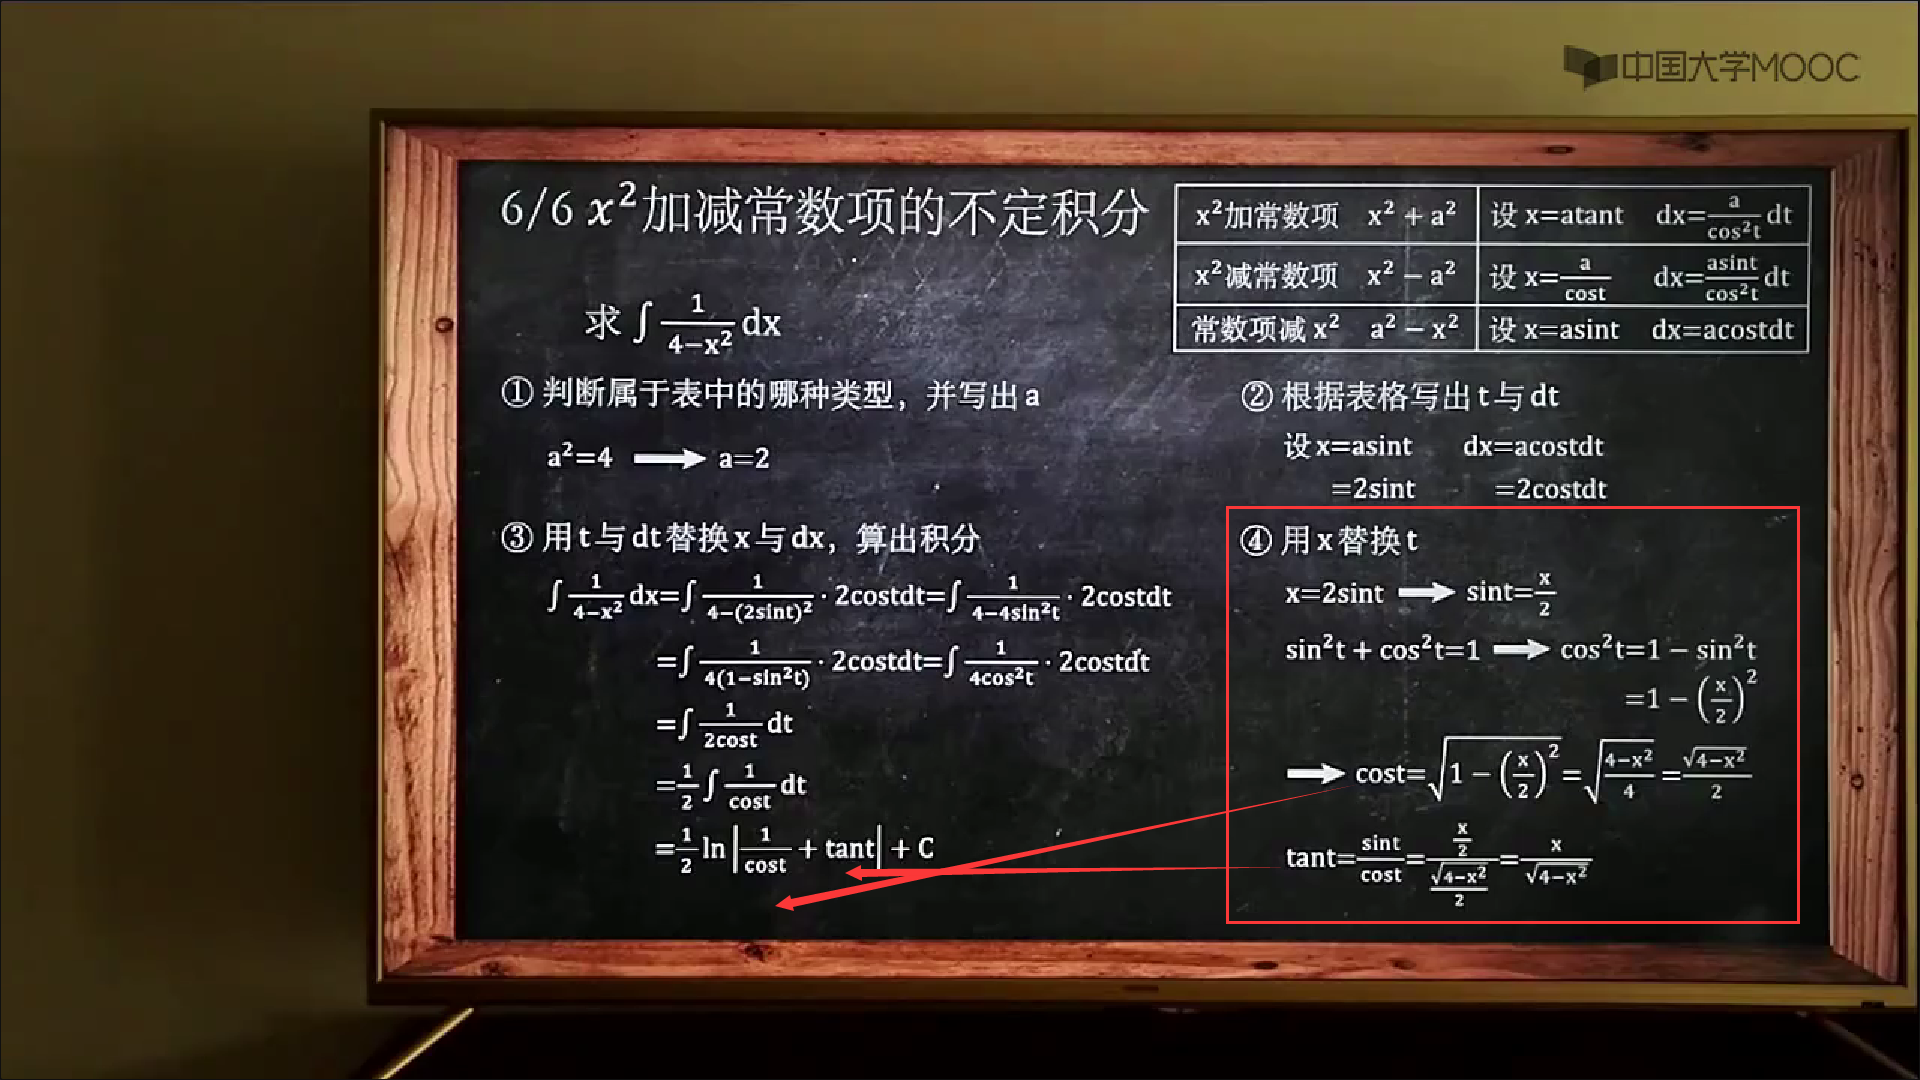 中国大学MOOC
6/6 x²加减常数项的不定积分
x²加常数项 x² + a² 设 x=atant dx=a/cos²t dt
x²减常数项 x² − a² 设 x=a/cost dx=asint/cos²t dt
常数项减 x² a² − x² 设 x=asint dx=acostdt
求 ∫ 1/(4−x²) dx
① 判断属于表中的哪种类型，并写出 a
a²=4 ➡ a=2
② 根据表格写出 t 与 dt
设 x=asint dx=acostdt
=2sint =2costdt
③ 用 t 与 dt 替换 x 与 dx，算出积分
∫ 1/(4−x²) dx=∫ 1/(4−(2sint)²) · 2costdt=∫ 1/(4−4sin²t) · 2costdt
=∫ 1/(4(1−sin²t)) · 2costdt=∫ 1/(4cos²t) · 2costdt
=∫ 1/(2cost) dt
=1/2 ∫ 1/cost dt
=1/2 ln|1/cost + tant| + C
④ 用 x 替换 t
x=2sint ➡ sint=x/2
sin²t + cos²t=1 ➡ cos²t=1 − sin²t
=1 − (x/2)²
➡ cost=√(1 − (x/2)²)=√((4−x²)/4)=√(4−x²)/2
tant=sint/cost=(x/2)/(√(4−x²)/2)=x/√(4−x²)